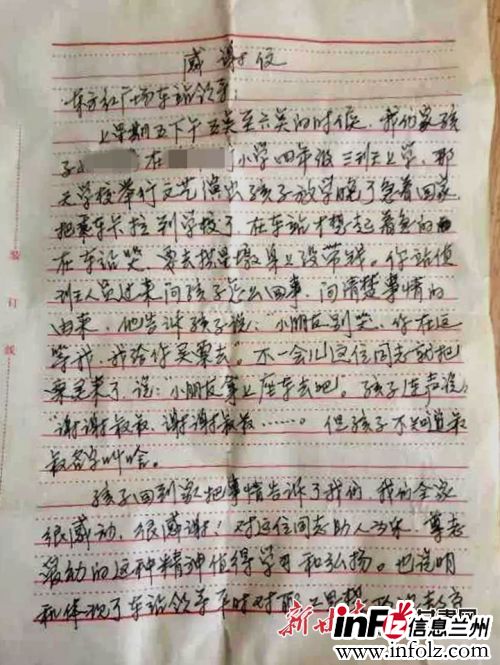 感谢信
东方红广场车站领导:
上星期五下午五点至六点的时候,我们家孩
子 在 小学四年级三班上学,那
天学校举行文艺演出孩子放学晚了急着回家
把乘车卡拉到学校了,在车站才想起着急的
在车站哭,要去 身上没带钱。你站值
班人员过来问孩子怎么回事,问清楚事情的
由来,他告诉孩子说:“小朋友别哭,你在这
等我,我给你买票去”。不一会儿这位同志就把
票买来了,说:“小朋友拿上座车去吧。孩子连声说:
“谢谢叔叔,谢谢叔叔……。但孩子不知道叔
叔名字叫啥。
孩子回到家把事情告诉了我们,我们全家
很感动,很感谢!对这位同志助人为乐,尊老
爱幼的这种精神值得学习和弘扬。也说明
和体现了车站领导平时对职工
装订线
新甘肃
infOLZ.com
信息兰州
www.infolz.com